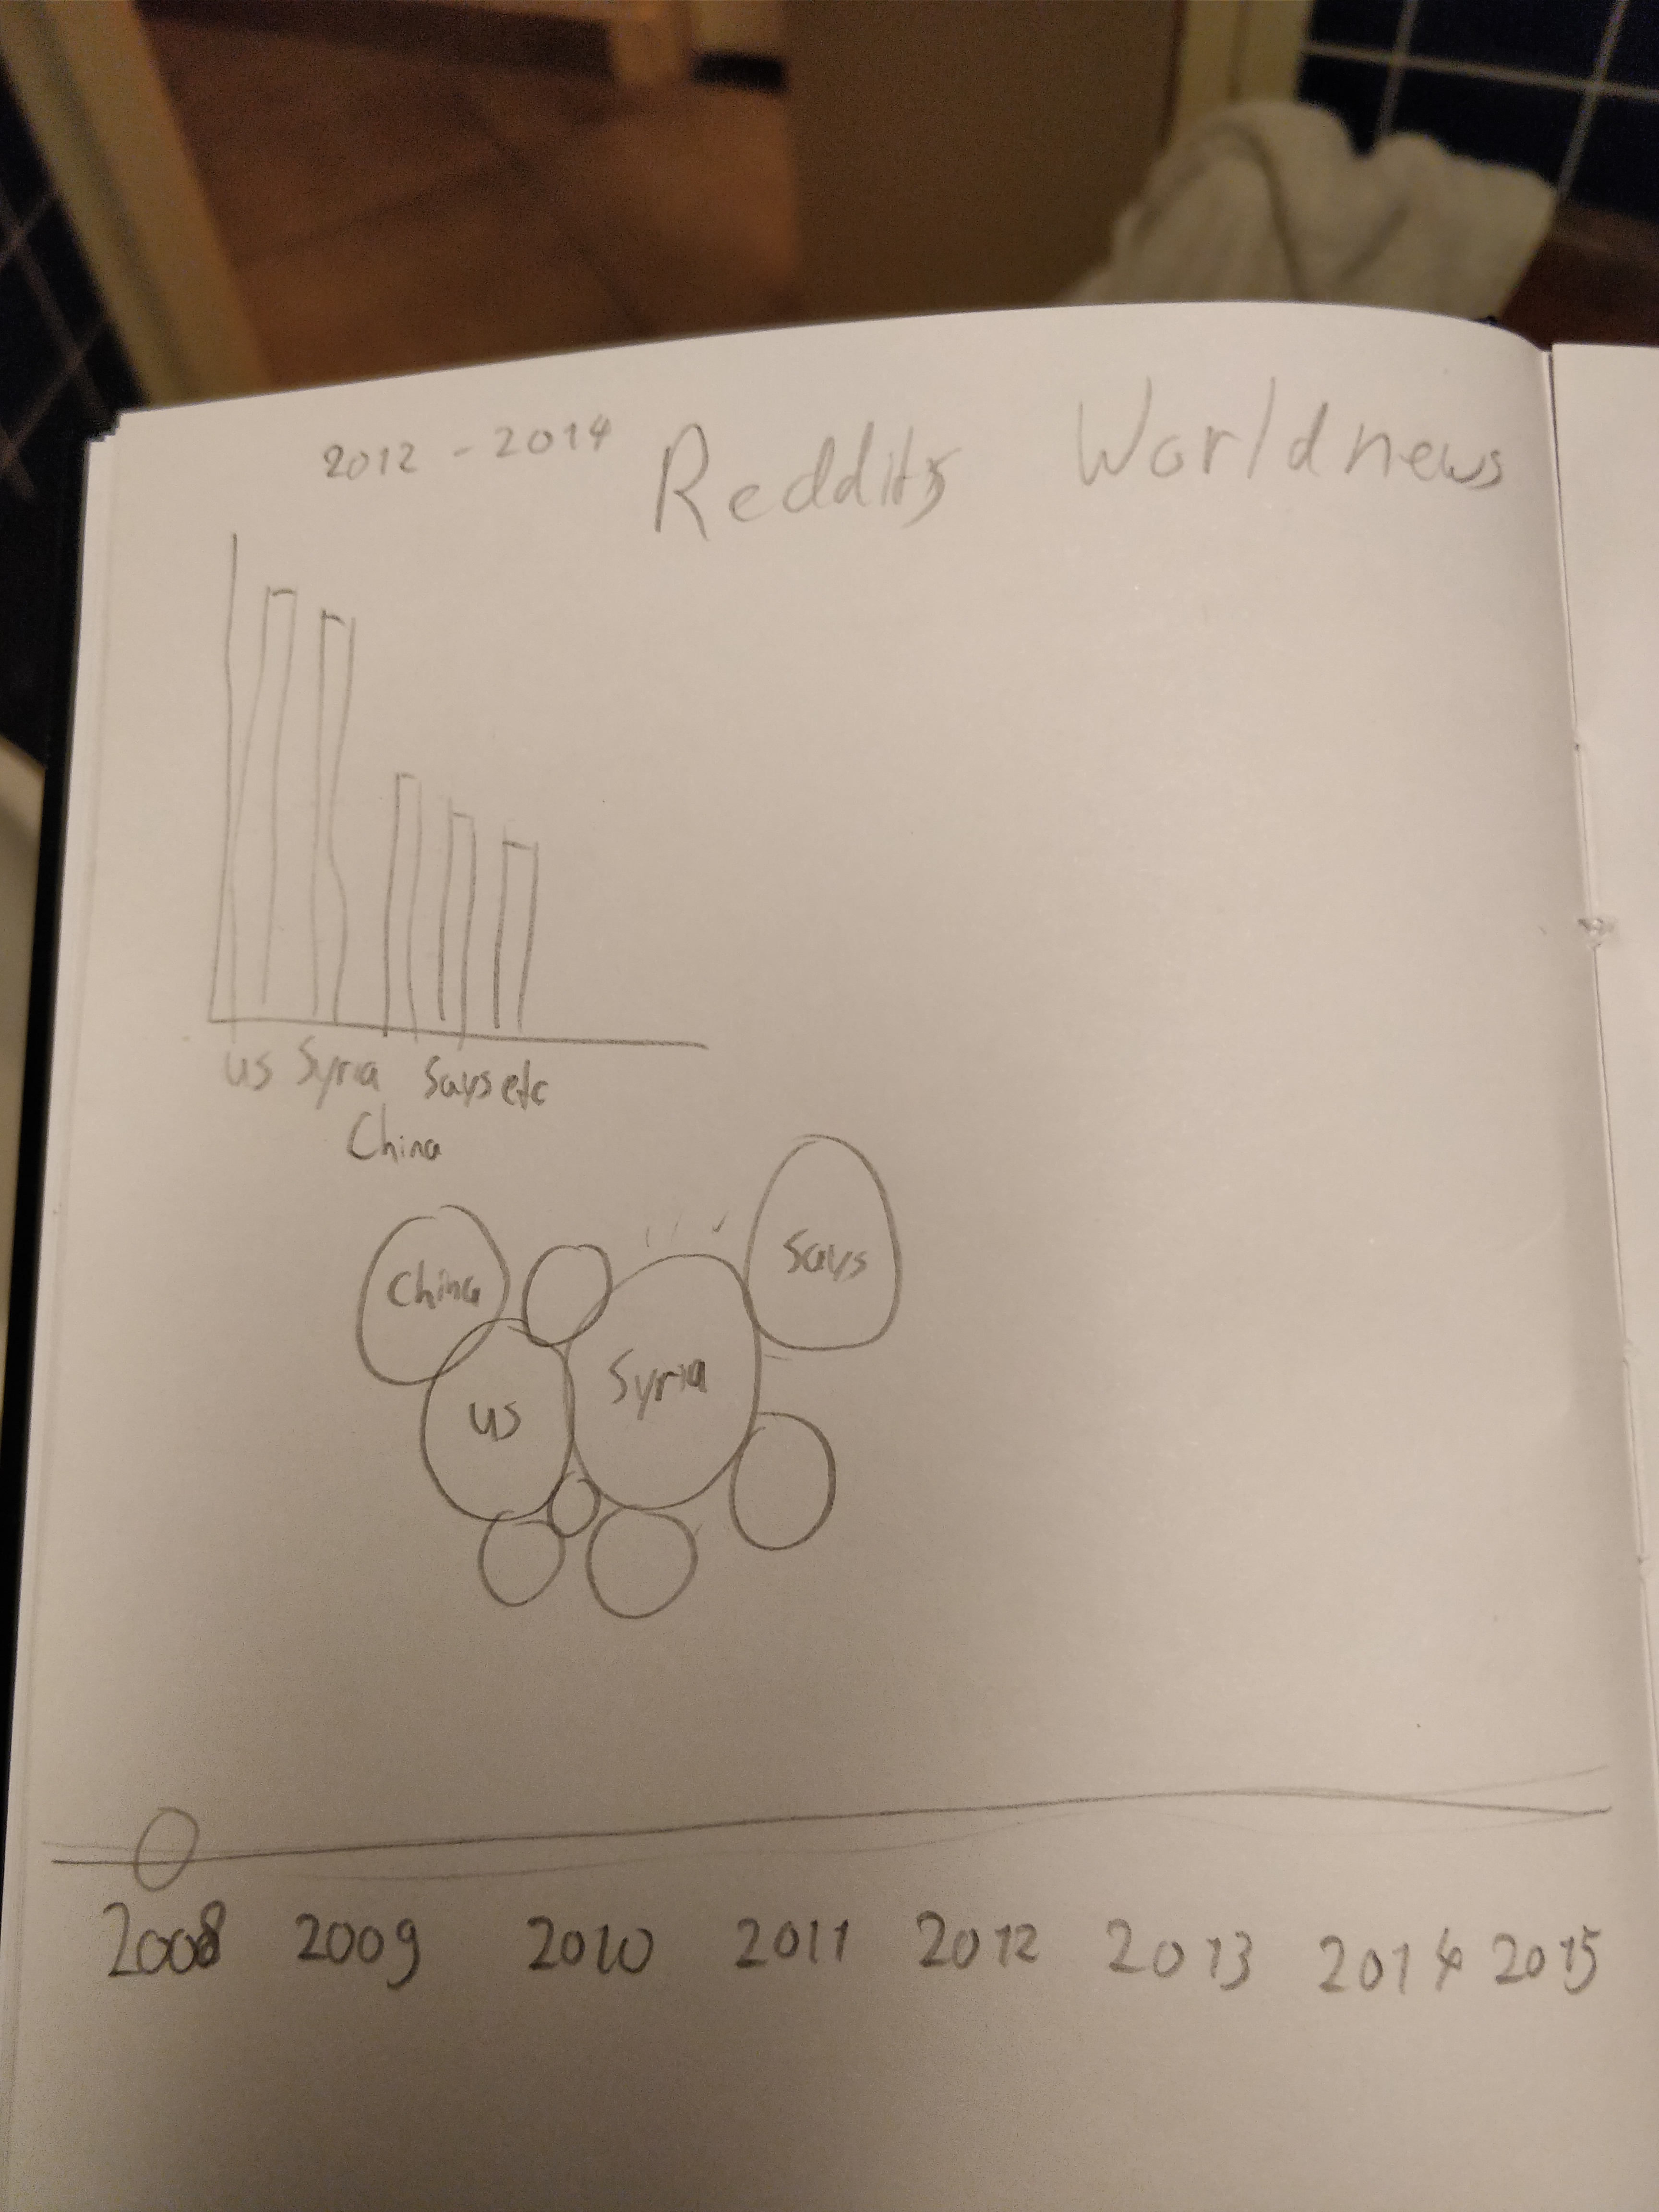 2012 - 2014 Reddits Worldnews
US Syria Says etc
China
China
Says
Syria
US
2008 2009 2010 2011 2012 2013 2014 2015